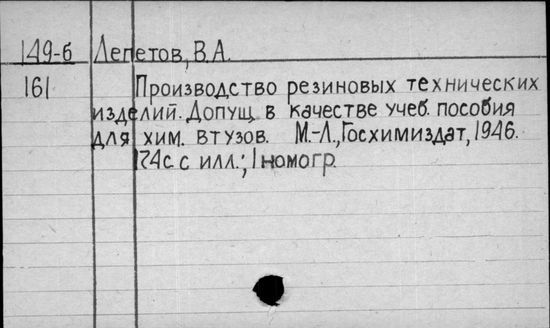 149-б Лепетов, В.А.
161 Производство резиновых технических
изделий. Допущ. в качестве учеб. пособия
для хим. втузов. М.-Л., Госхимиздат, 1946.
174с. с илл.; 1 номогр.